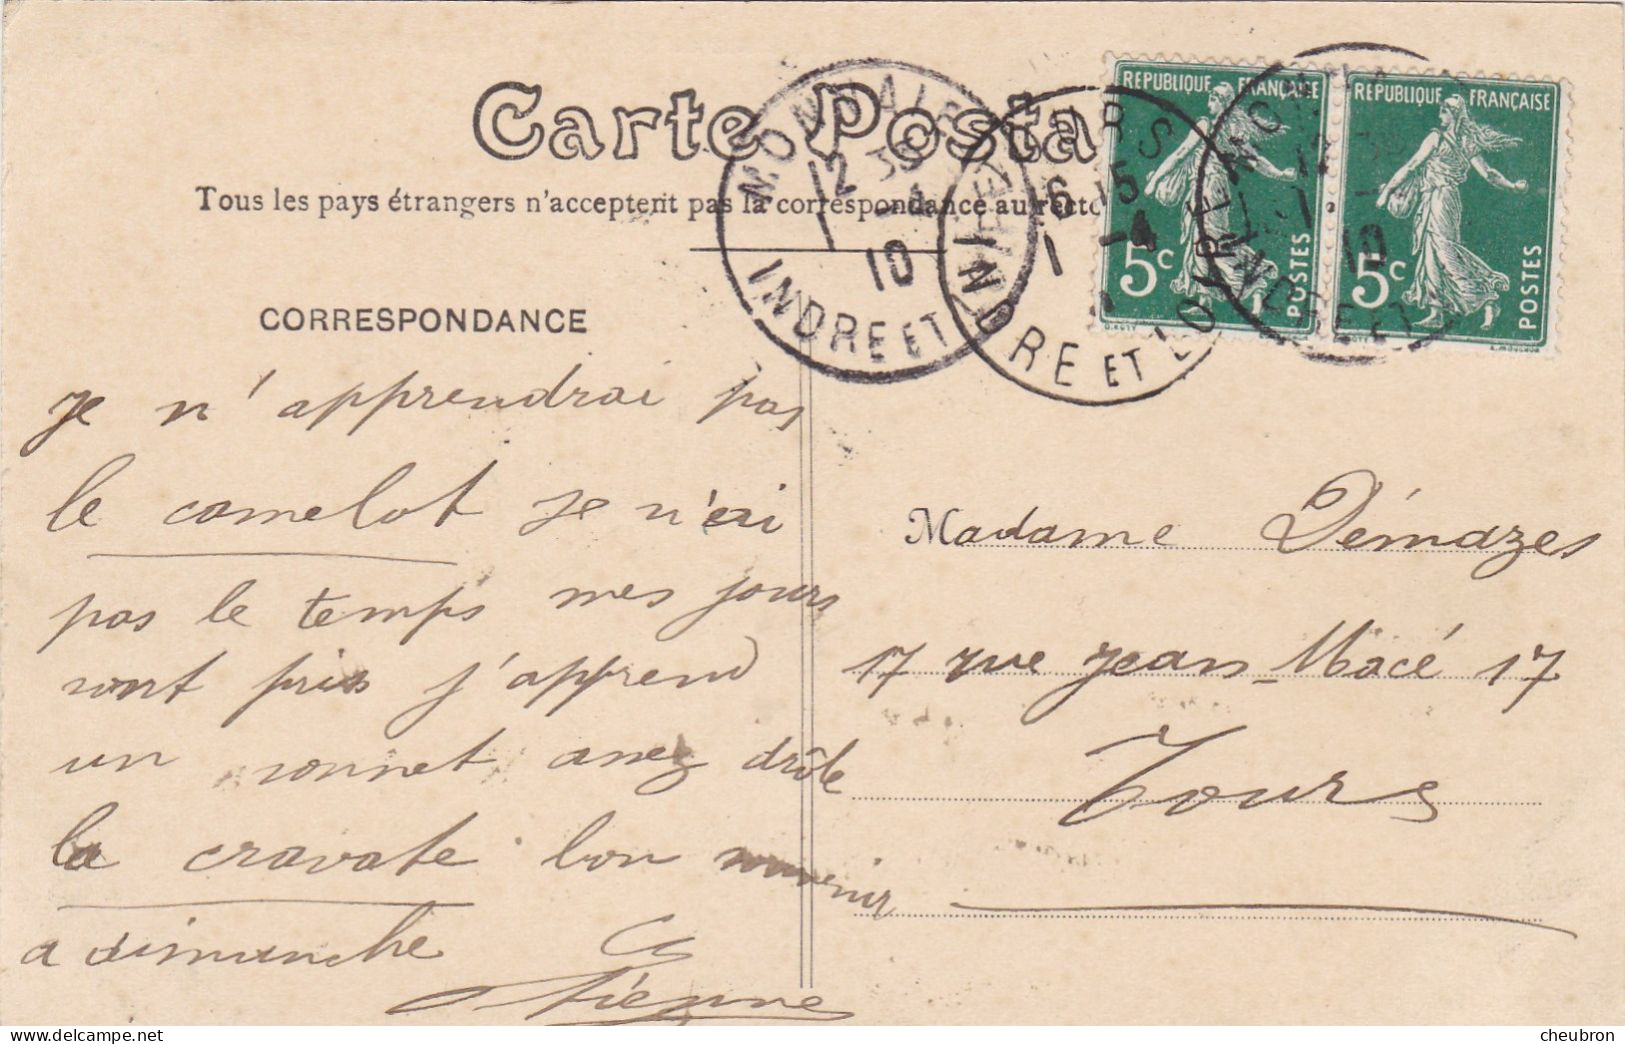 Carte Posta
Tous les pays étrangers n'acceptent pas la correspondance au recto
CORRESPONDANCE
MONNAIE
12 35
1 -4
10
INDRE ET
TOURS
6 15
1 -4
INDRE ET LOIRE
REPUBLIQUE FRANÇAISE
5c
POSTES
REPUBLIQUE FRANÇAISE
5c
POSTES
12 35
10
INDRE ET
je n'apprendrai pas
le camelot je n'ai
pas le temps mes jours
sont pris j'apprend
un sonnet assez drôle
la cravate bon souvenir
a dimanche
Etienne
Madame Démazes
17 rue Jean-Macé 17
Tours
cheubron